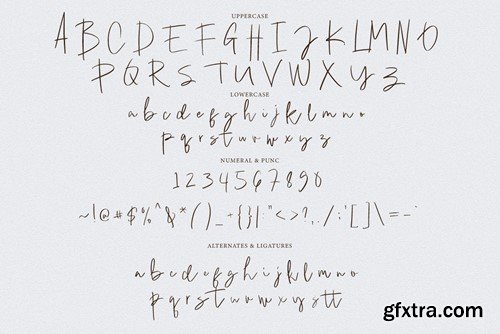 UPPERCASE
A B C D E F G H I J K L M N O
P Q R S T U V W X Y Z
LOWERCASE
a b c d e f g h i j k l m n o
p q r s t u v w x y z
NUMERAL & PUNC
1 2 3 4 5 6 7 8 9 0
~ ! @ # $ % ^ & * ( ) _ + { } | : " < > ? , . / ; ' [ ] \ = - `
ALTERNATES & LIGATURES
a b c d e f g h i j k l m n o
p q r s t u v w x y s tt
gfxtra.com